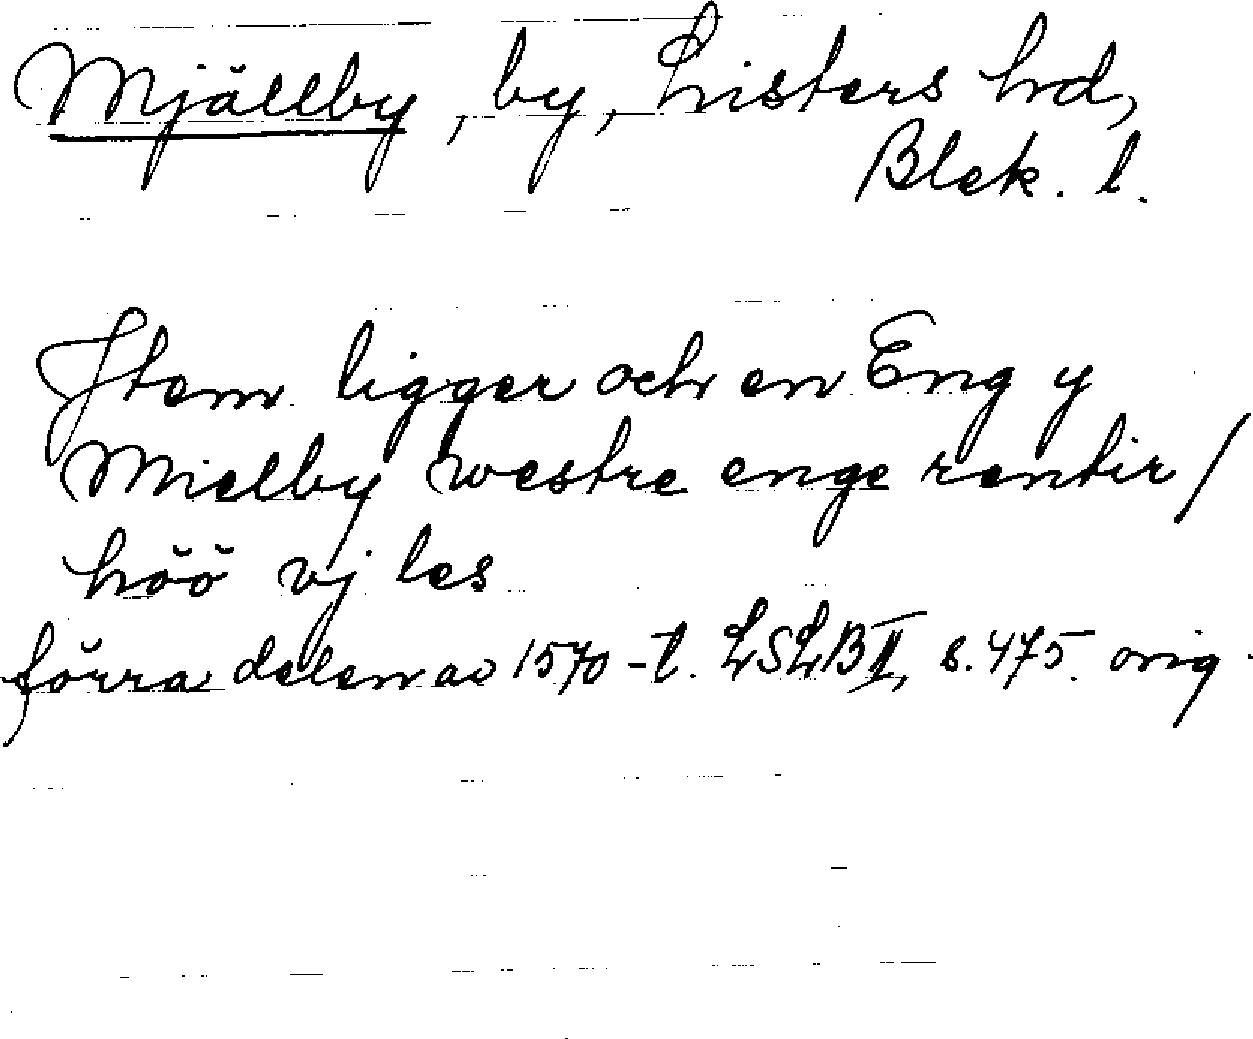 Mjällby, by, Listers hd,
Blek. l.
Jtem ligger och en Eng y
Mielby westre enge rentir /
höö vj les
förra delen av 1570-t. LSLB II, s. 475. orig.